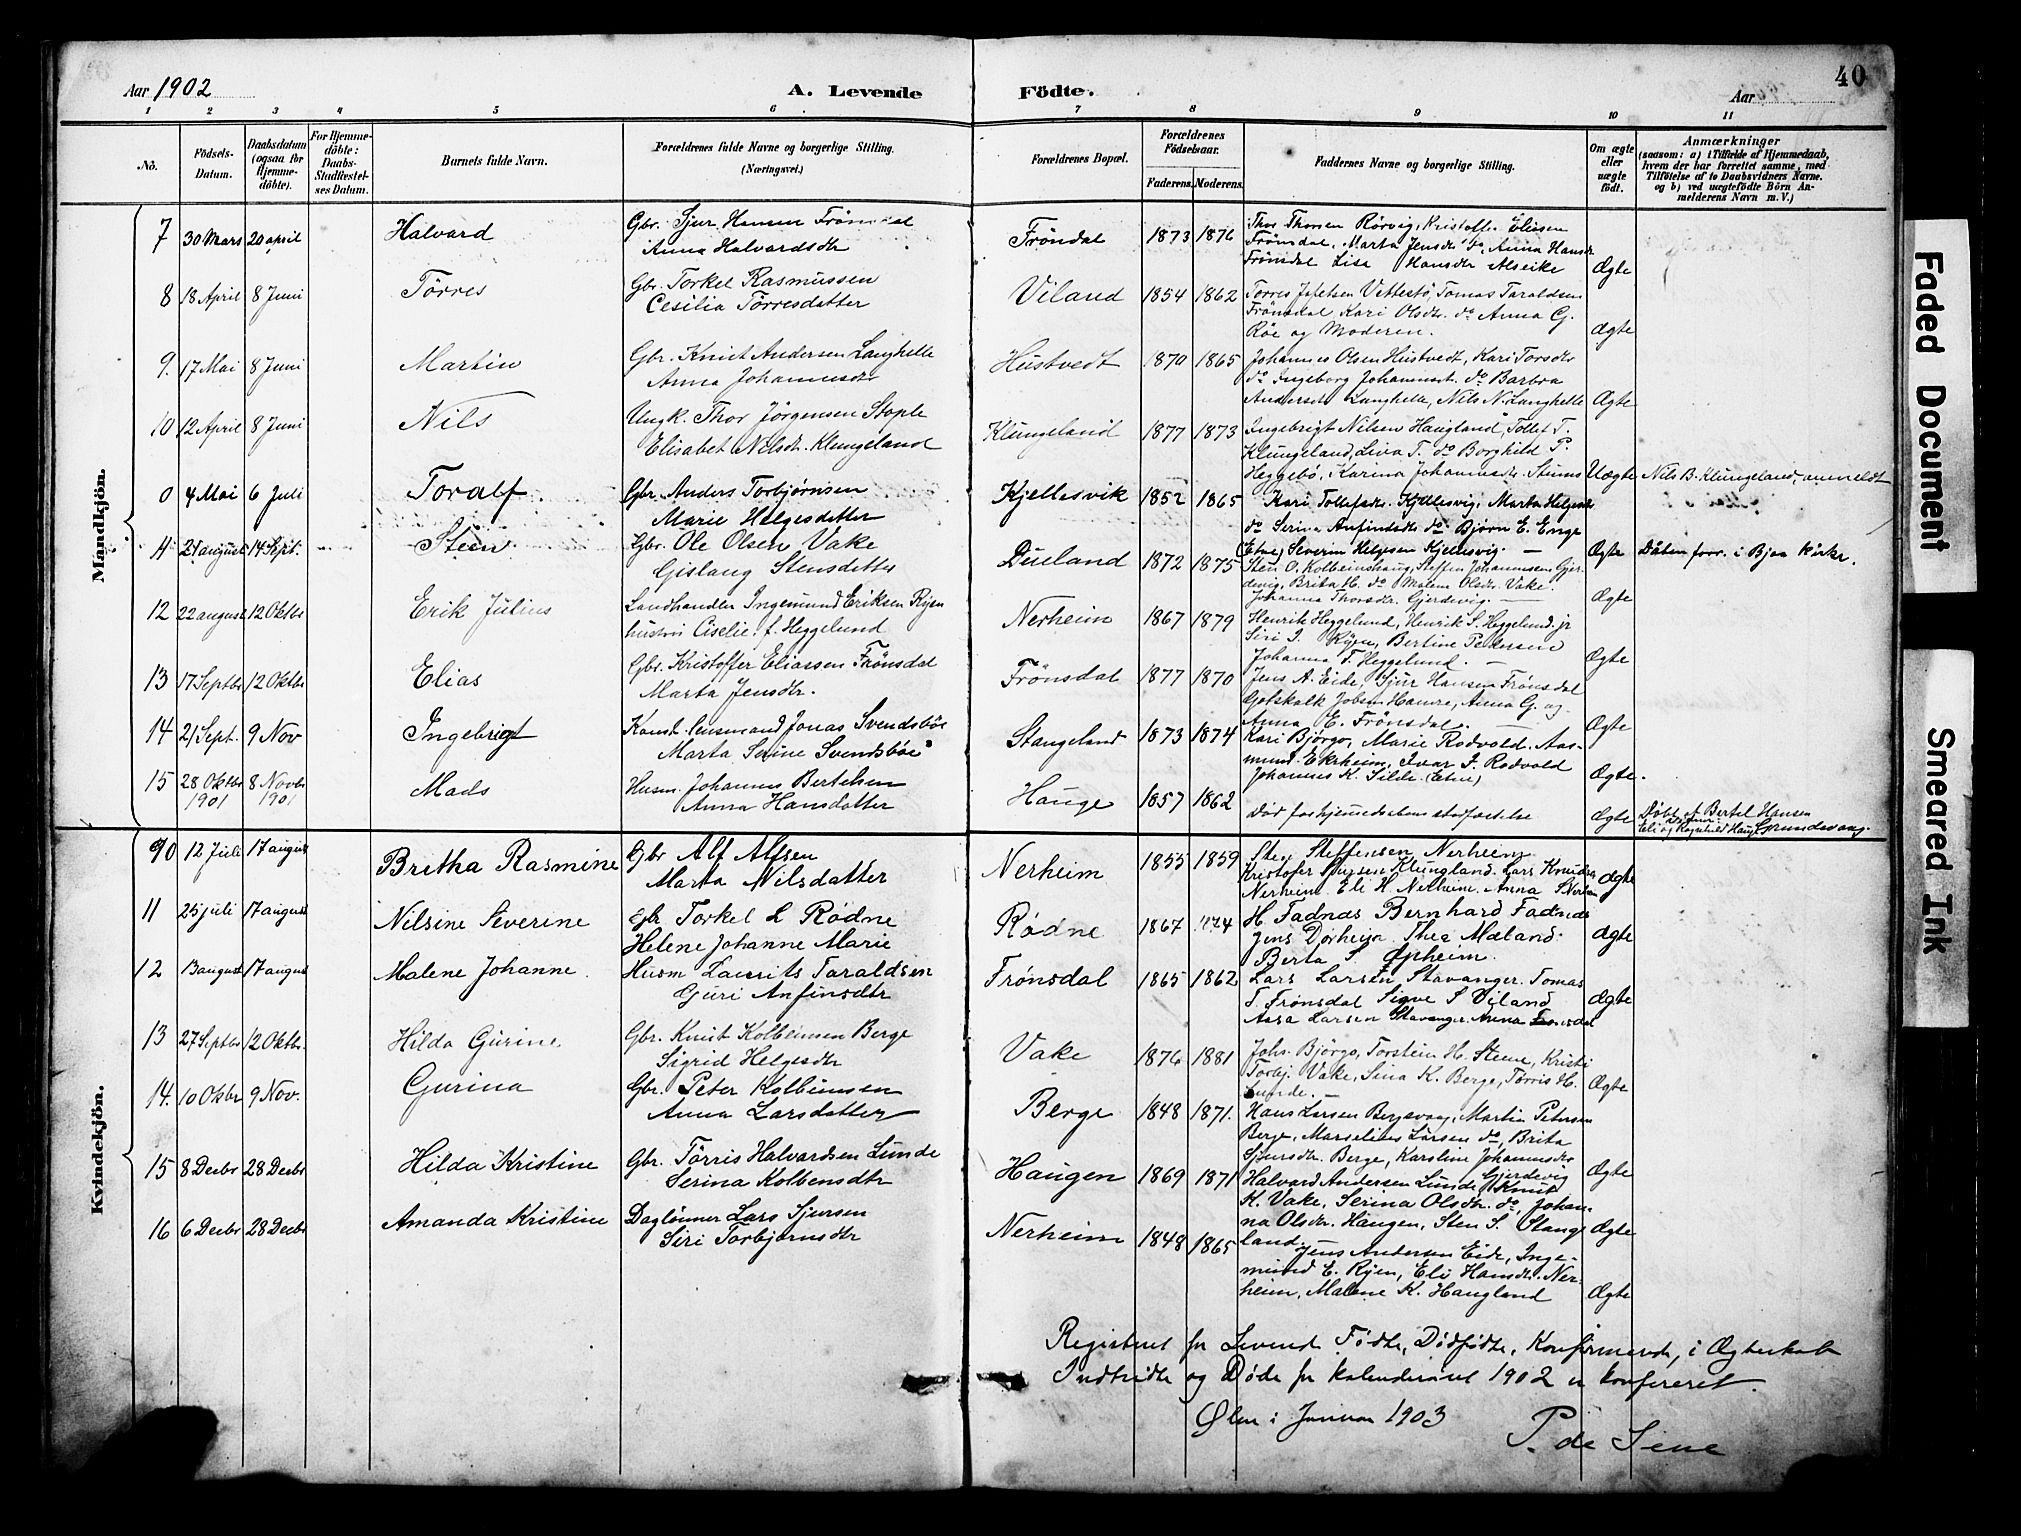 Aar 1902
A. Levende Födte.
Aar
40
1 2 3 4 5 6 7 8 9 10 11
No.
Födsels-Datum.
Daabsdatum (ogsaa for Hjemme-döbte).
For Hjemme-döbte: Daabs-Stadfæstel-ses Datum.
Barnets fulde Navn.
Forældrenes fulde Navne og borgerlige Stilling. (Næringsvei.)
Forældrenes Bopæl.
Forældrenes Födselsaar.
Faderens. Moderens.
Faddernes Navne og borgerlige Stilling.
Om ægte eller uægte födt.
Anmærkninger
(saasom: a) i Tilfælde af Hjemmedaab,
hvem der har forrettet samme, med
Tilföielse af to Daabsvidners Navne.
og b) ved uægtefödte Börn An-
melderens Navn m. V.)
Mandkjön.
7 30 Mars 20 april Halvard Gbr. Sjur Hansen
Anna Halvardsdtr Fröndal 1873 1876 Thor Thorsen Rörvig, Kristoffer Eliasen
Frönsdal, Marta Jensdtr do, Anna Hansdr
Frönsdal Lisa Hansdtr Alseike Ægte
8 18 April 8 Juni Törres Gbr. Torkel Rasmussen
Cesilia Törresdatter Viland 1854 1862 Torres Vettestö, Tomas Taraldsen
Frönsdal, Kari Olsdr. do Anna G.
Röe og Moderen. Ægte
9. 17 Mai 8 Juni Martin Gbr. Knut Andersen Langhelle
Anna Johannesdtr Hustvedt 1870 1865 Johannes Olsen Hustvedt, Kari Torsdtr
do Ingeborg Johannesdt. do Barbra
Andersdr Langhelle, Nils N. Langhelle Ægte
10 12 April 8 Juni Nils Ungk. Thor Jörgensen Stople
Elisabet Nilsdtr. Klungeland Klungeland 1877 1873 Ingebrigt Nilsen Haugland, Tollef T.
Klungeland, Liva T. do Borghild P.
Heggebö, Karina Johannesdr. Uægte Nils B. Klungeland, anmeldt
0 4 Mai 6 Juli Toralf Gbr. Anders Torbjørnsen
Marie Helgesdatter Kjellesvik 1852 1865 Kari Tollefsdr. Kjellesvig, Marta Helgesdr
do Serina Anfindsdtr do Bjørn E. Enge
(Etne) Severin Helgesen Kjellesvig. — Ægte Dåben forr. i Bjoa kirke.
11 21 august 14 Sept. Steen Gbr. Ole Olsen Vake
Gislaug Stensdatter Dueland 1872 1875 Sten O. Kolbeinshaug, Steffen Johannessen Gjer-
devig, Brita H. do Malene Olsdtr. Vake.
Johanna Thorsdtr. Gjerdevig. — Ægte
12 22 august 12 Oktbr Erik Julius Landhandler Ingemund Eriksen Ryen
hustru Ciselie f. Heggelund Nerheim 1867 1879 Henrik Heggelund, Henrik S. Heggelund jr
Siri I. Ryen, Bertine Pedersen
Johanna F. Heggelund. — Ægte
13 17 Septbr 12 Oktbr Elias Gbr. Kristoffer Eliassen Frønsdal
Marta Jensdtr. Frønsdal 1877 1870 Jens A. Eide, Sjur Hansen Frønsdal
Gotskalk Jobsen Hamre, Anna G. og
Anna E. Frønsdal. — Ægte
14 21 Sept. 9 Nov Ingebrigt Const. Lensmand Jonas Svendsböe
Marta Serine Svendsböe Stangeland 1873 1874 Kari Bjørgo, Marie Rodvold, Aas-
mund Ekrheim, Ivar I. Rodvold
Johannes K. Silde (Etne) Ægte.
15 28 Oktbr 1901 8 Novbr 1901 Mads Husm. Johannes Bertelsen
Anna Hansdatter Hauge 1857 1862 Död før hjemmedaabens stadfæstelse Ægte Döbt af Bertel Hansen
Kvindekjön.
10 12 Juli 17 august Bretha Rasmine Gbr Alf Alfsen
Marta Nilsdatter Nerheim 1855 1859 Sten Steffensen Nerheim
Kristofer Sjursen Klungland. Lars Knudsn
Nerheim. Eli H Nerheim. Anna S Nerheim Ægte
11 25 juli 17 august Nilsine Severine Gbr Torkel L Rødne
Helene Johanne Marie Rødne 1867 1874 H. Fadnæs Bernhard Fadnæs
Jens Dørheim. Thea Mæland
Berta S. Opheim. Ægte
12 13 august 17 august Malene Johanne. Husm Laurits Taraldsen
Guri Anfinsdtr Frønsdal 1865 1862 Lars Larsen Stavanger. Tomas
T. Frønsdal Signe S Viland
Aasa Larsen Stavanger. Anna Frønsdal Ægte
13 27 Septbr 12 Oktbr. Hilda Gurine Gbr. Knut Kolbensen Berge
Sigrid Helgesdtr Vake 1876 1881 Johs. Bjørgo, Torstein H. Steine, Kristi
Torbj. Vake, Sina K. Berge, Tørris H.
Lunde. — Ægte
14. 10 Oktbr 9 Nov. Gurina Gbr. Peter Kolbensen
Anna Larsdatter Berge 1848 1871. Hans Larsen Bergsvaag, Martin Petersen
Berge, Marselius Larsen do, Brita
Sjursdtr. Berge, Karoline Johannesdtr
Gjerdevig Ægte
15 8 Decbr 28 Decbr Hilda Kristine Gbr. Tørris Halvardsen Lunde
Serina Kolbensdtr Haugen 1869 1871 Halvard Andersen Lunde, Knut
K. Vake, Serina Olsdtr. do, Johan-
na Olsdr. Haugen, Sten S. Stange
land. Ægte
16 6 Decbr 28 Decbr Amanda Kristine Daglønner Lars Sjursen
Siri Torbjørnsdtr Nerheim 1848 1865 Jens Andersen Eide, Inge-
mund E. Ryen, Eli Hansdr. Ner-
heim, Malene K. Haugland Ægte
Registeret for Levende Fødte, Dødfødte, Konfirmerede, i Ægteskab
Indtrådte og Døde for Kalenderåret 1902 er konfereret.
Ølen i Januar 1903
P. de Seue
Faded Document
Smeared Ink